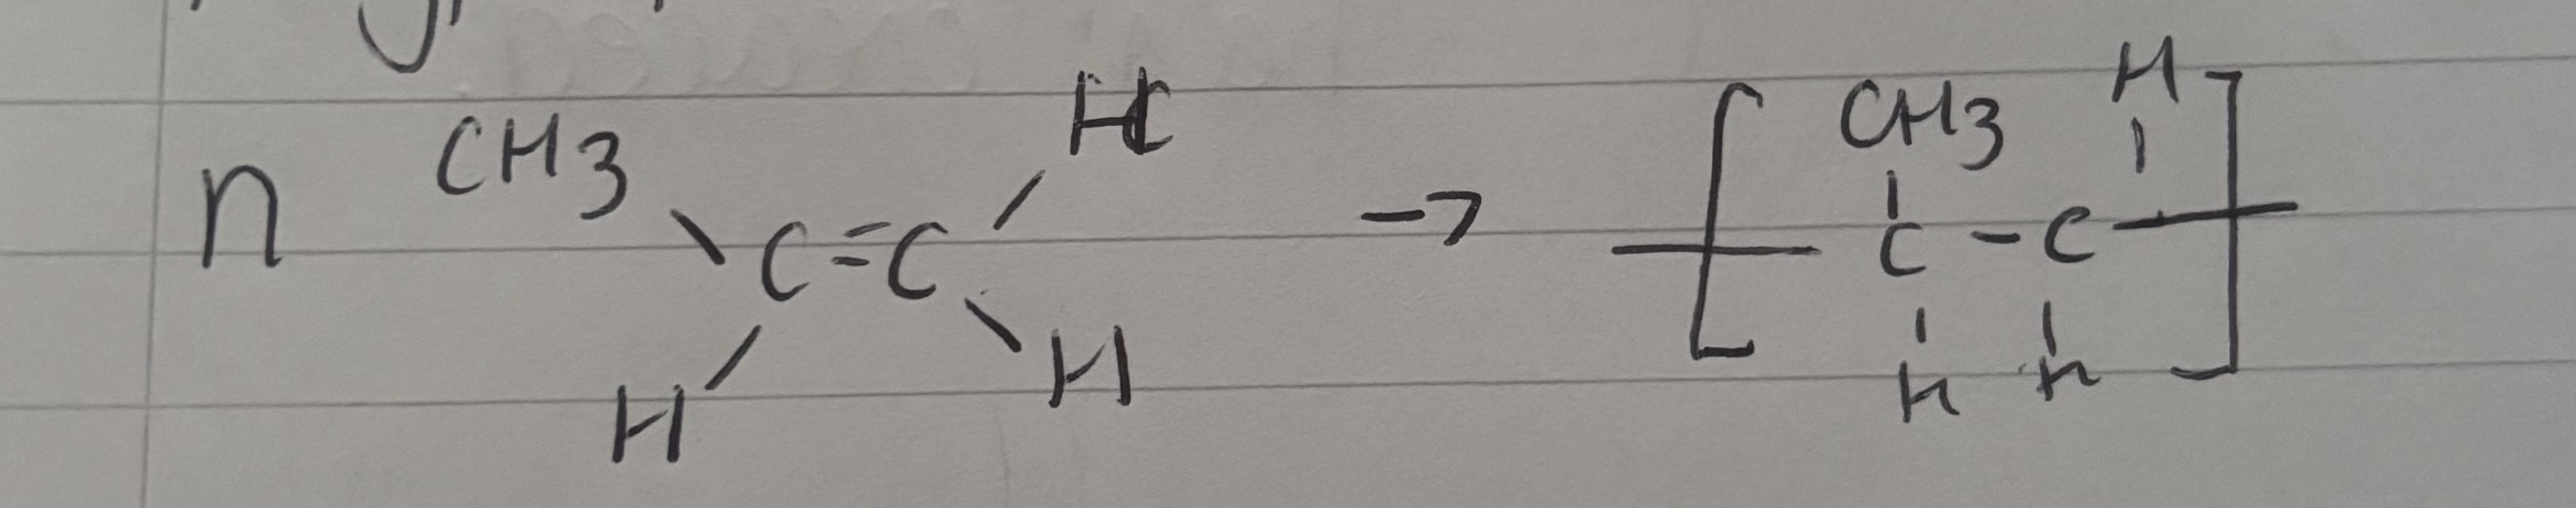 n CH3 C=C H H H → [ CH3 H C - C H H ]